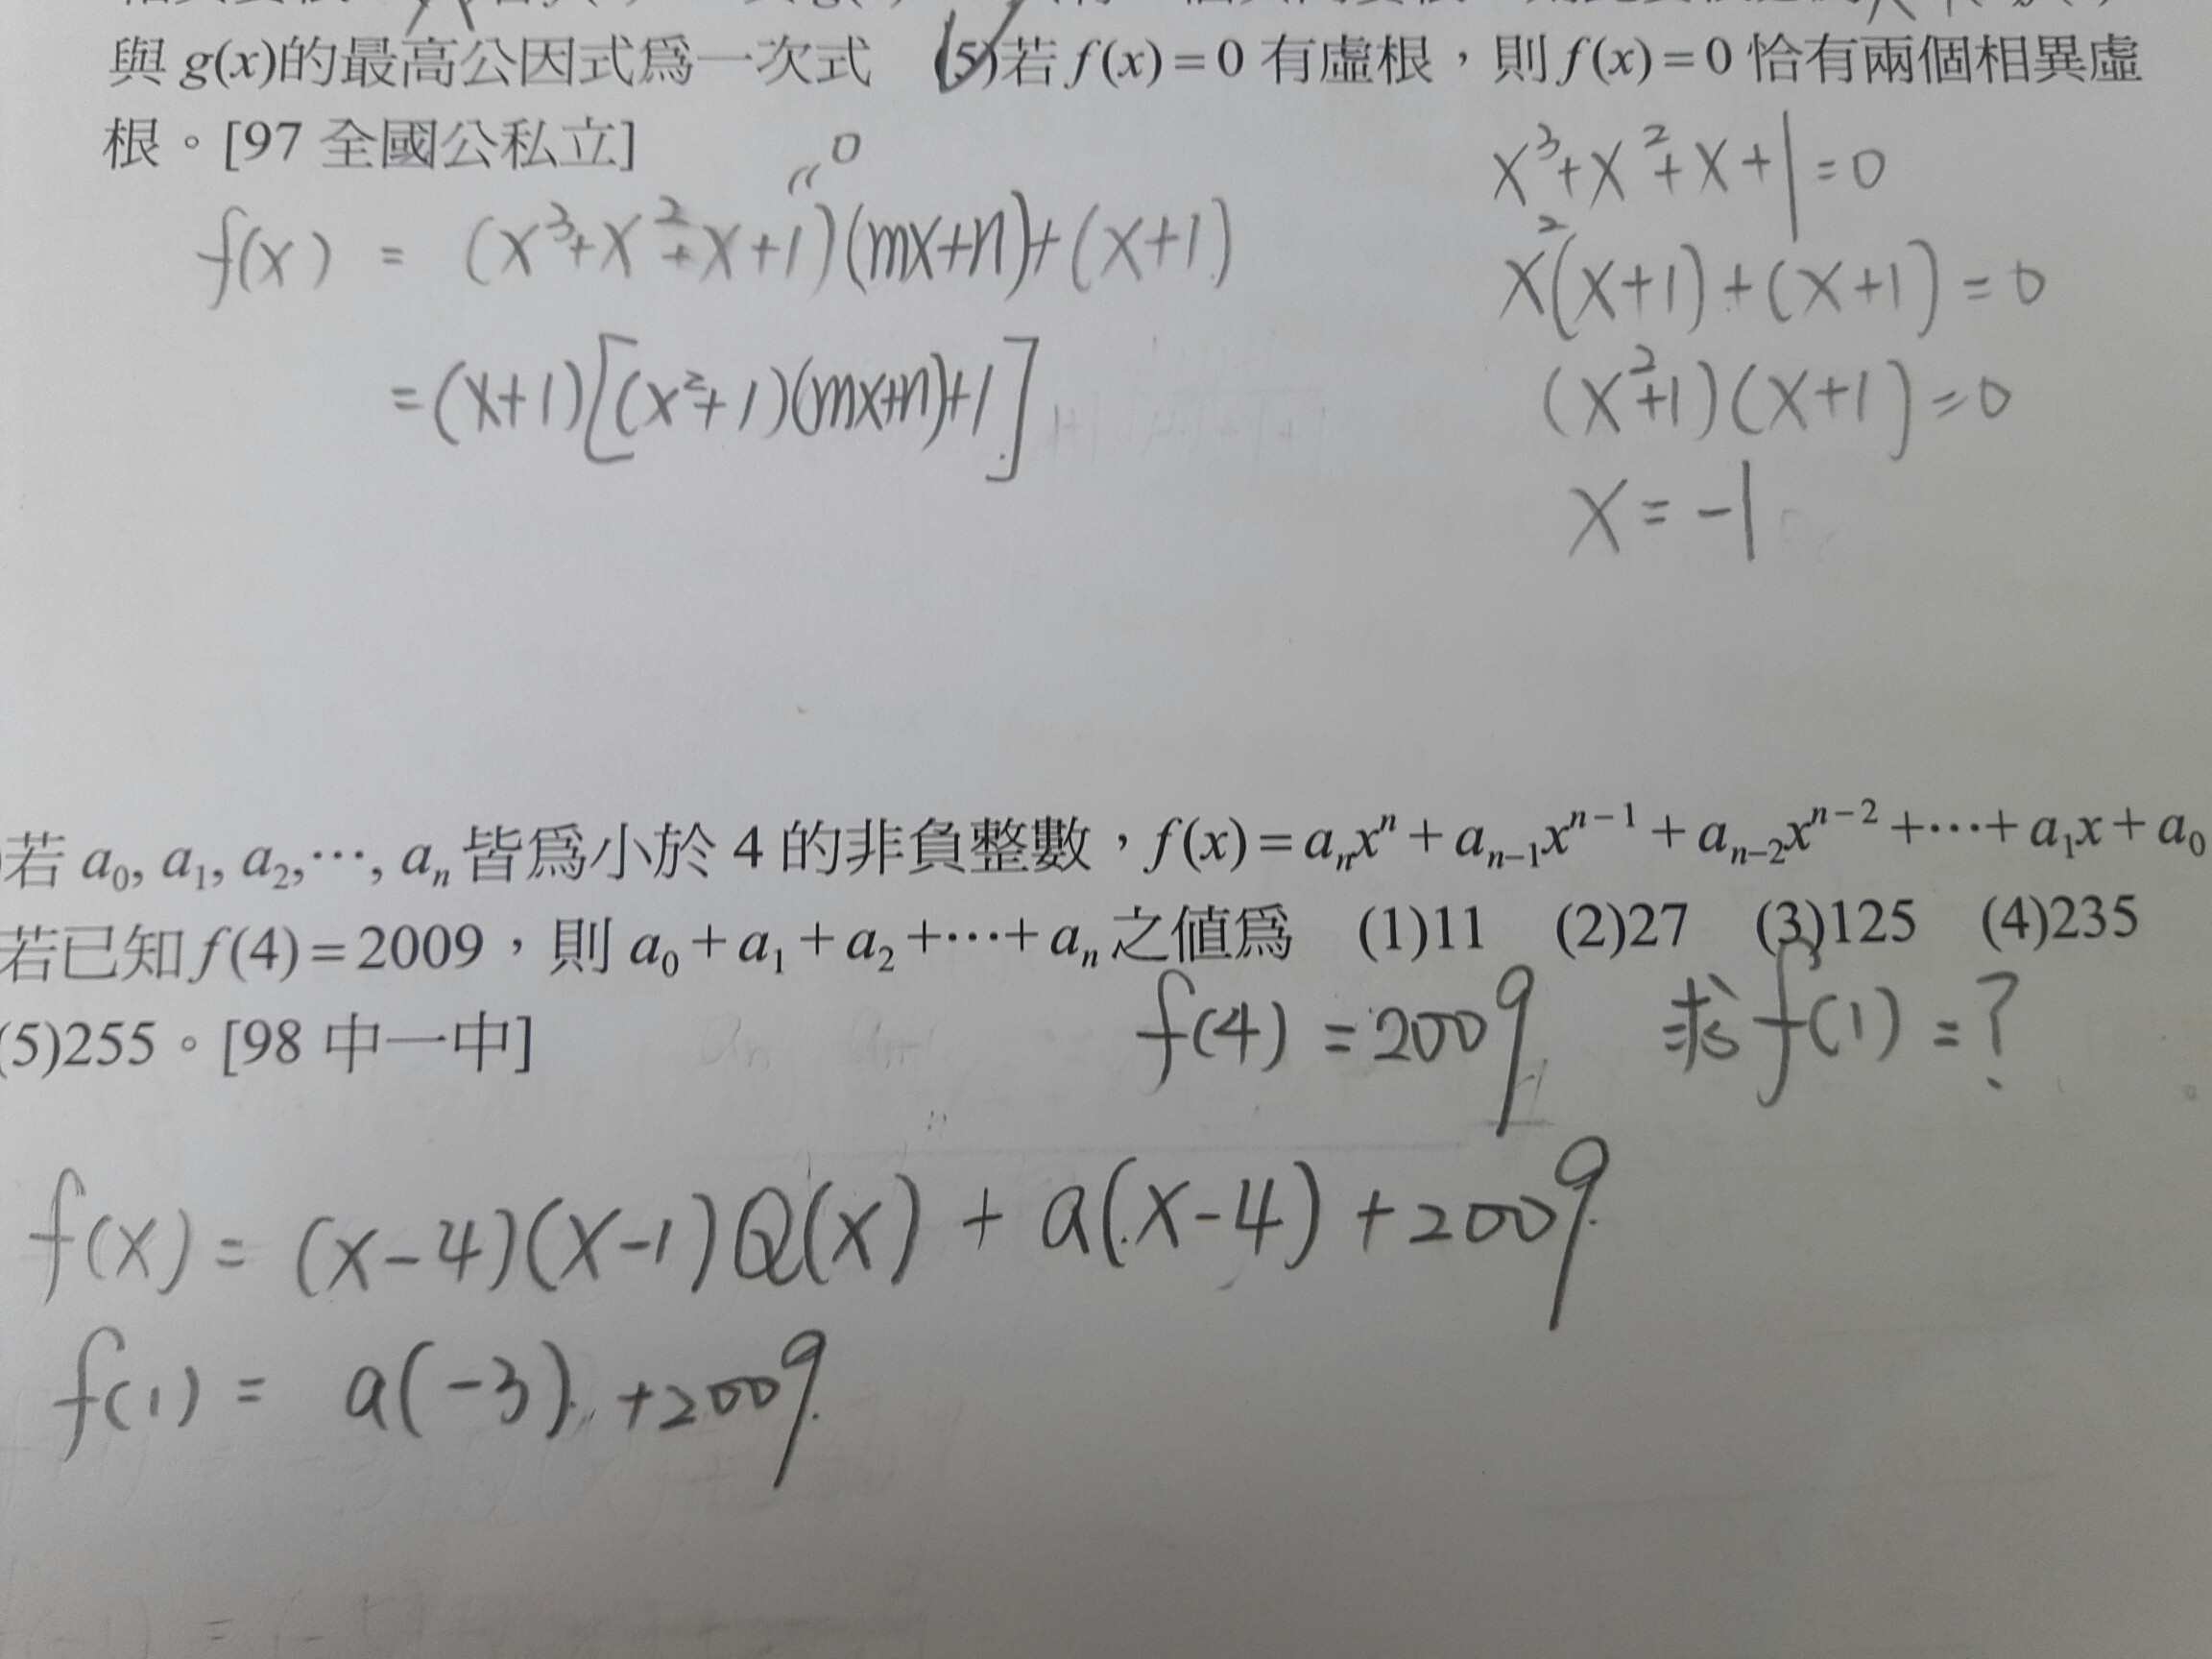 與 g(x)的最高公因式爲一次式 (5)若 f(x)=0 有虛根，則 f(x)=0 恰有兩個相異虛
根。[97 全國公私立]
0
f(x) = (x³+x²+x+1)(mx+n)+(x+1)
=(x+1)[(x²+1)(mx+n)+1]
x³+x²+x+1=0
x²(x+1)+(x+1)=0
(x²+1)(x+1)=0
x=-1
若 a₀, a₁, a₂,⋯, aₙ 皆爲小於 4 的非負整數，f(x)=aₙxⁿ+aₙ₋₁xⁿ⁻¹+aₙ₋₂xⁿ⁻²+⋯+a₁x+a₀
若已知 f(4)=2009，則 a₀+a₁+a₂+⋯+aₙ 之值爲 (1)11 (2)27 (3)125 (4)235
(5)255。[98 中一中]
f(4)=2009 求f(1)=?
f(x)=(x-4)(x-1)Q(x)+a(x-4)+2009
f(1)= a(-3)+2009